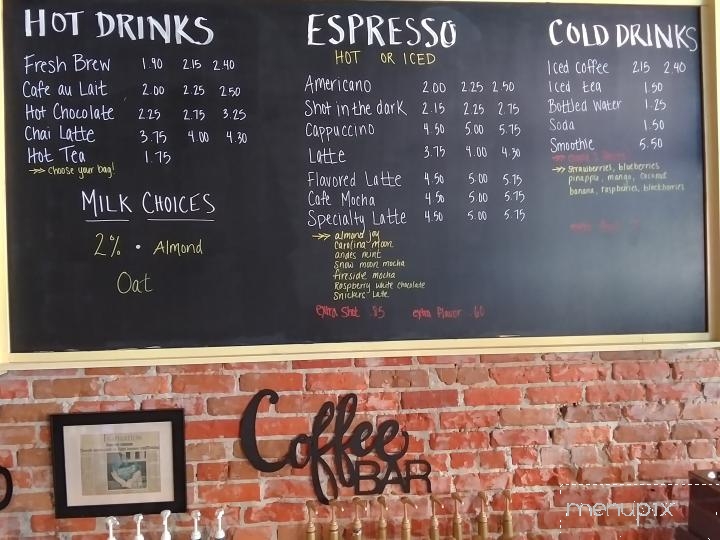 HOT DRINKS
Fresh Brew 1.90 2.15 2.40
Cafe au Lait 2.00 2.25 2.50
Hot Chocolate 2.25 2.75 3.25
Chai Latte 3.75 4.00 4.30
Hot Tea 1.75
choose your bag!
MILK CHOICES
2% • Almond
Oat
ESPRESSO
HOT OR ICED
Americano 2.00 2.25 2.50
Shot in the dark 2.15 2.25 2.75
Cappuccino 4.50 5.00 5.75
Latte 3.75 4.00 4.30
Flavored Latte 4.50 5.00 5.75
Cafe Mocha 4.50 5.00 5.75
Specialty Latte 4.50 5.00 5.75
almond joy
Carolina moon
andes mint
Snow moon mocha
fireside mocha
Raspberry white chocolate
Snickers Latte
extra Shot .85 extra flavor .60
COLD DRINKS
Iced Coffee 2.15 2.40
Iced tea 1.50
Bottled Water 1.25
Soda 1.50
Smoothie 5.50
Strawberries, blueberries
pinapple, mango, coconut
banana, raspberries, blackberries
Coffee
BAR
menupix